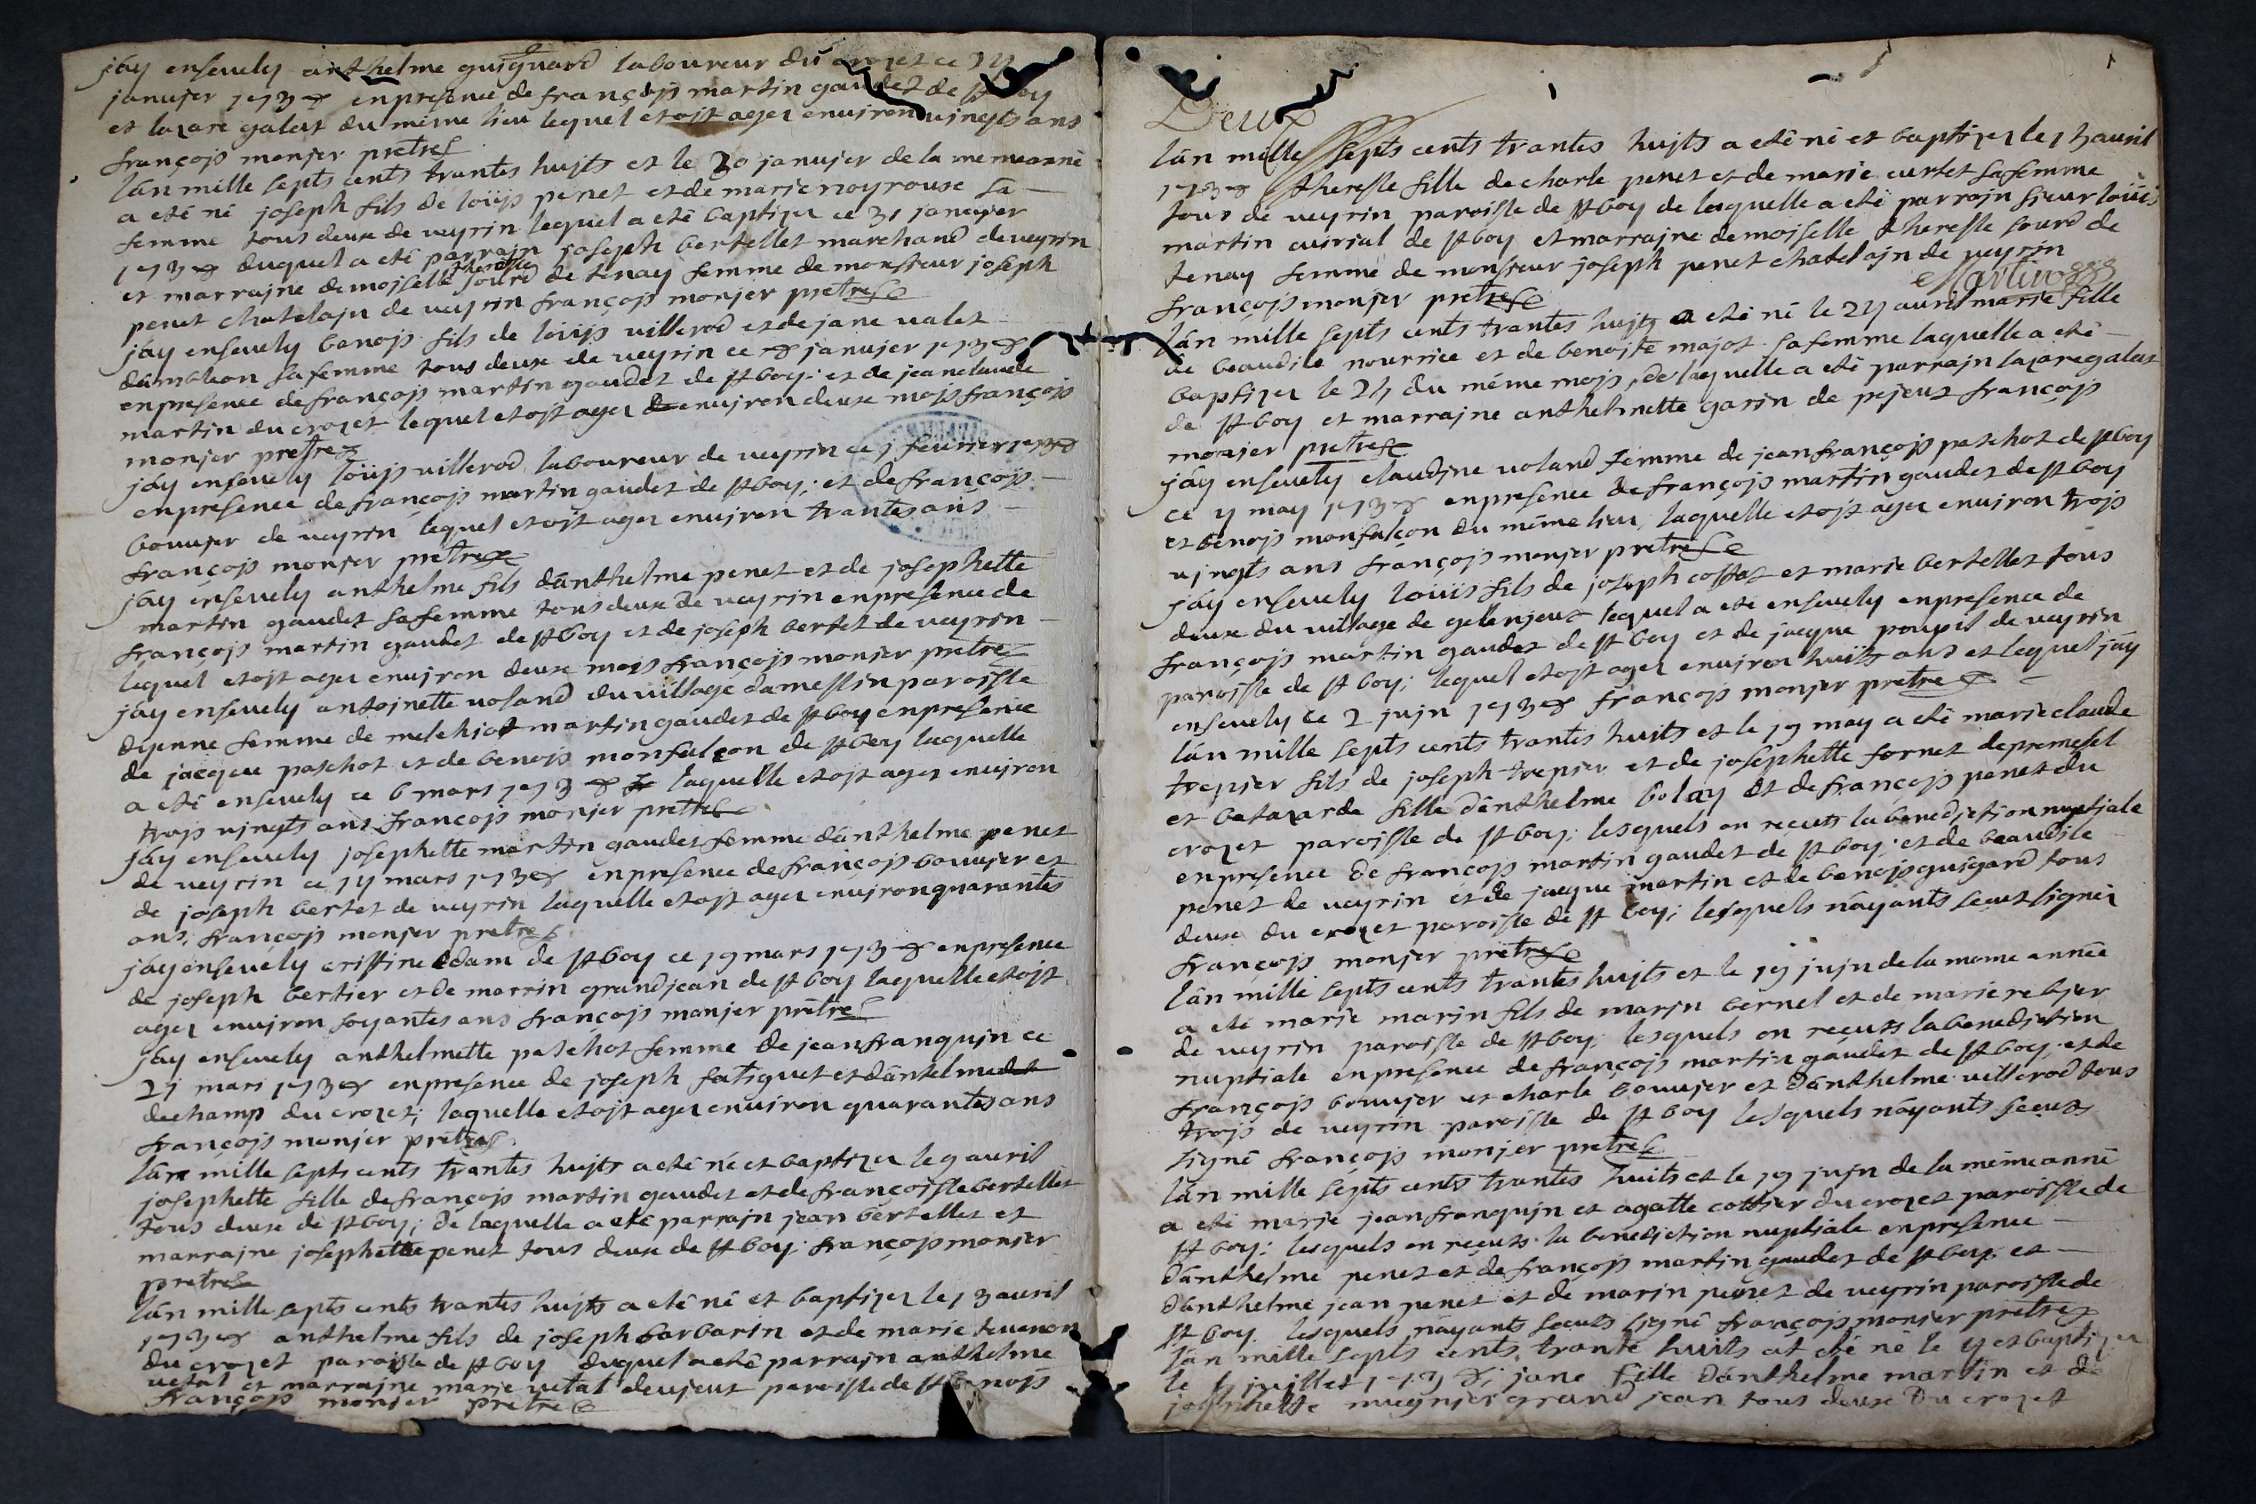 jáy ensevely anthelme guiguard laboureur du crozet ce
janvjer 1738 enpresence de françojs martin gaudet de st boy
et lazare galest du même lieu lequel etojt agez environ vjngts ans
françojs monjer prêtre
lán mille septs cents trantes hujts et le 30 janvjer de la mêmeanné
a eté né joseph fils de loüjs penet et de marie noyrouse sa
femme tous deux de veyrin lequel a eté baptizez ce 31 janvjer
1738 duquel a eté parrajn joseph bertellet marchand de veyrin
et marrajne demojselle therese sourd de tenay femme de monsieur joseph
penet chatelajn de veyrin françojs monjer prêtre
jáy ensevely benojs fils de loüjs villerod et de jane valet
dambleon sa femme tous deux de veyrin ce 8 janvjer 1738
enpresence de françojs martin gaudet de st boy; et de jeanclaude
martin du crozet lequel etojt agez de environ deux mojs françojs
monjer prêtre
jáy ensevely loüjs villerod laboureur de veyrin ce j fevrier 1738
enpresence de françojs martin gaudet de st boy; et de françojs
bouvjer de veyrin lequel etojt agez environ trantes ans
françojs monjer prêtre
jáy ensevely anthelme fils dánthelme penet et de josephette
martin gaudet sa femme tous deux de veyrin enpresence de
françojs martin gaudet de st boy et de joseph bertet de veyrin
lequel etojt agez environ deux mojs françojs monjer prêtre
jáy ensevely antojnette voland du village damessin paroisse
dyenne femme de melchjot martin gaudet de st boy enpresence
de jacque paschot et de benojs monfalçon de st boy laquelle
a eté ensevely ce 6 mars 1738 laquelle etojt agez environ
trojs vjngts ans françojs monjer prêtre
jáy ensevely josephette martin gaudet femme dánthelme penet
de veyrin ce 14 mars 1738 enpresence de françojs bouvjer et
de joseph bertet de veyrin laquelle etojt agez environ quarantes
ans; françojs monjer prêtre
jáy ensevely cristine adam de st boy ce 19 mars 1738 enpresence
de joseph bertier et de marrin grandjean de st boy laquelle etojt
agez environ soyantes ans françojs monjer prêtre
jáy ensevely anthelmette paschot femme de jean franqujn ce
21 mars 1738 enpresence de joseph fatiguet et dántelme
dechamp du crozet; laquelle etojt agez environ quarantes ans
françojs monjer prêtre
lán mille septs cents trantes hujts a eté né et baptizez le 9 avril
josephette fille de françojs martin gaudet et de françoisse bertellet
tous deux de st boy; de laquelle a eté parrajn jean bertellet et
marrajne josephette penet tous deux de st boy; françojs monjer
prêtre
lán mille septs cents trantes hujts a eté né et baptizez le 13 avril
1738 anthelme fils de joseph barbarin et de marie tevenon
du crozet paroisse de st boy duquel a eté parrajn anthelme
vetat et marrajne marie vetat deujeux paroisse de st benojs
françojs monjer prêtre
Deux
lán mille septs cents trantes hujts a eté né et baptizez le 13 avril
1738 theresse fille de charle penet et de marie curtet sa femme
tous de veyrin paroisse de st boy de laquelle a eté parrajn sieur loüis
martin curial de st boy et marrajne demoiselle theresse sourd de
tenay femme de monsieur joseph penet chatelajn de veyrin
Martin
françojs monjer prêtre
lán mille septs cents trantes hujts a eté né le 24 avril marie fille
de beaudile nourrice et de benojte majot sa femme laquelle a eté
baptizez le 24 du même mojs, de laquelle a eté parrajn lazare galest
de st boy et marrajne anthelmette garin de pejeux françojs
monjer prêtre
jáy ensevely claudine voland femme de jean françojs paschot de st boy
ce 4 may 1738 enpresence de françojs martin gaudet de st boy
et benojs monfalçon du même lieu, laquelle etojt agez environ trojs
vjngts ans françojs monjer prêtre
jáy ensevely loüis fils de joseph costaz et marie bertellet tous
deux du village de gelinjeux lequel a eté ensevely enpresence de
françojs martin gaudet de st boy et de jacque poupet de veyrin
paroisse de st boy; lequel etojt agez environ hujts ans et lequel jáy
ensevely ce 2 jujn 1738 françojs monjer prêtre
lán mille septs cents trantes hujts et le 19 may a eté marie claude
trepjer fils de joseph trepjer et de josephette fornet de premesel
et batazarde fille dánthelme bolay et de françojs penet du
crozet paroisse de st boy; lesquels on reçuts la benedjction nuptjale
enpresence de françojs martin gaudet de st boy; et de beaudile
penet de veyrin et de jacque martin et de benojs guigard tous
deux du crozet paroisse de st boy; lesquels náyants sceut signer
françojs monjer prêtre
lán mille septs cents trantes hujts et le 19 jujn de la mome année
a eté marje marin fils de marin bernel et de marie rebjer
de veyrin paroisse de st boy; lesquels on reçuts la benedjction
nuptiale enpresence de françojs martin gaudet de st boy; et de
françojs bouvjer et charle bouvjer et dánthelme villerod tous
trojs de veyrin paroisse de st boy lesquels náyants sceuts
signé françojs monjer prêtre
lán mille septs cents trantes huits et le 19 jujn de la mêmeanné
a eté marje jean franqujn et agatte cottjer du crozet paroisse de
st boy; lesquels on reçuts la benediction nuptiale enpresence
dánthelme penet et de françojs martin gaudet de st boy; et
dánthelme jean penet et de marin penet de veyrin paroisse de
st boy. lesquels náyants sceuts signé françojs monjer prêtre
lán mille septs cents trante huits at eté né le 4 et baptizez
le juillet 1738; jane fille dánthelme martin et de
josephette mugnier grand jean tous deux du crozet